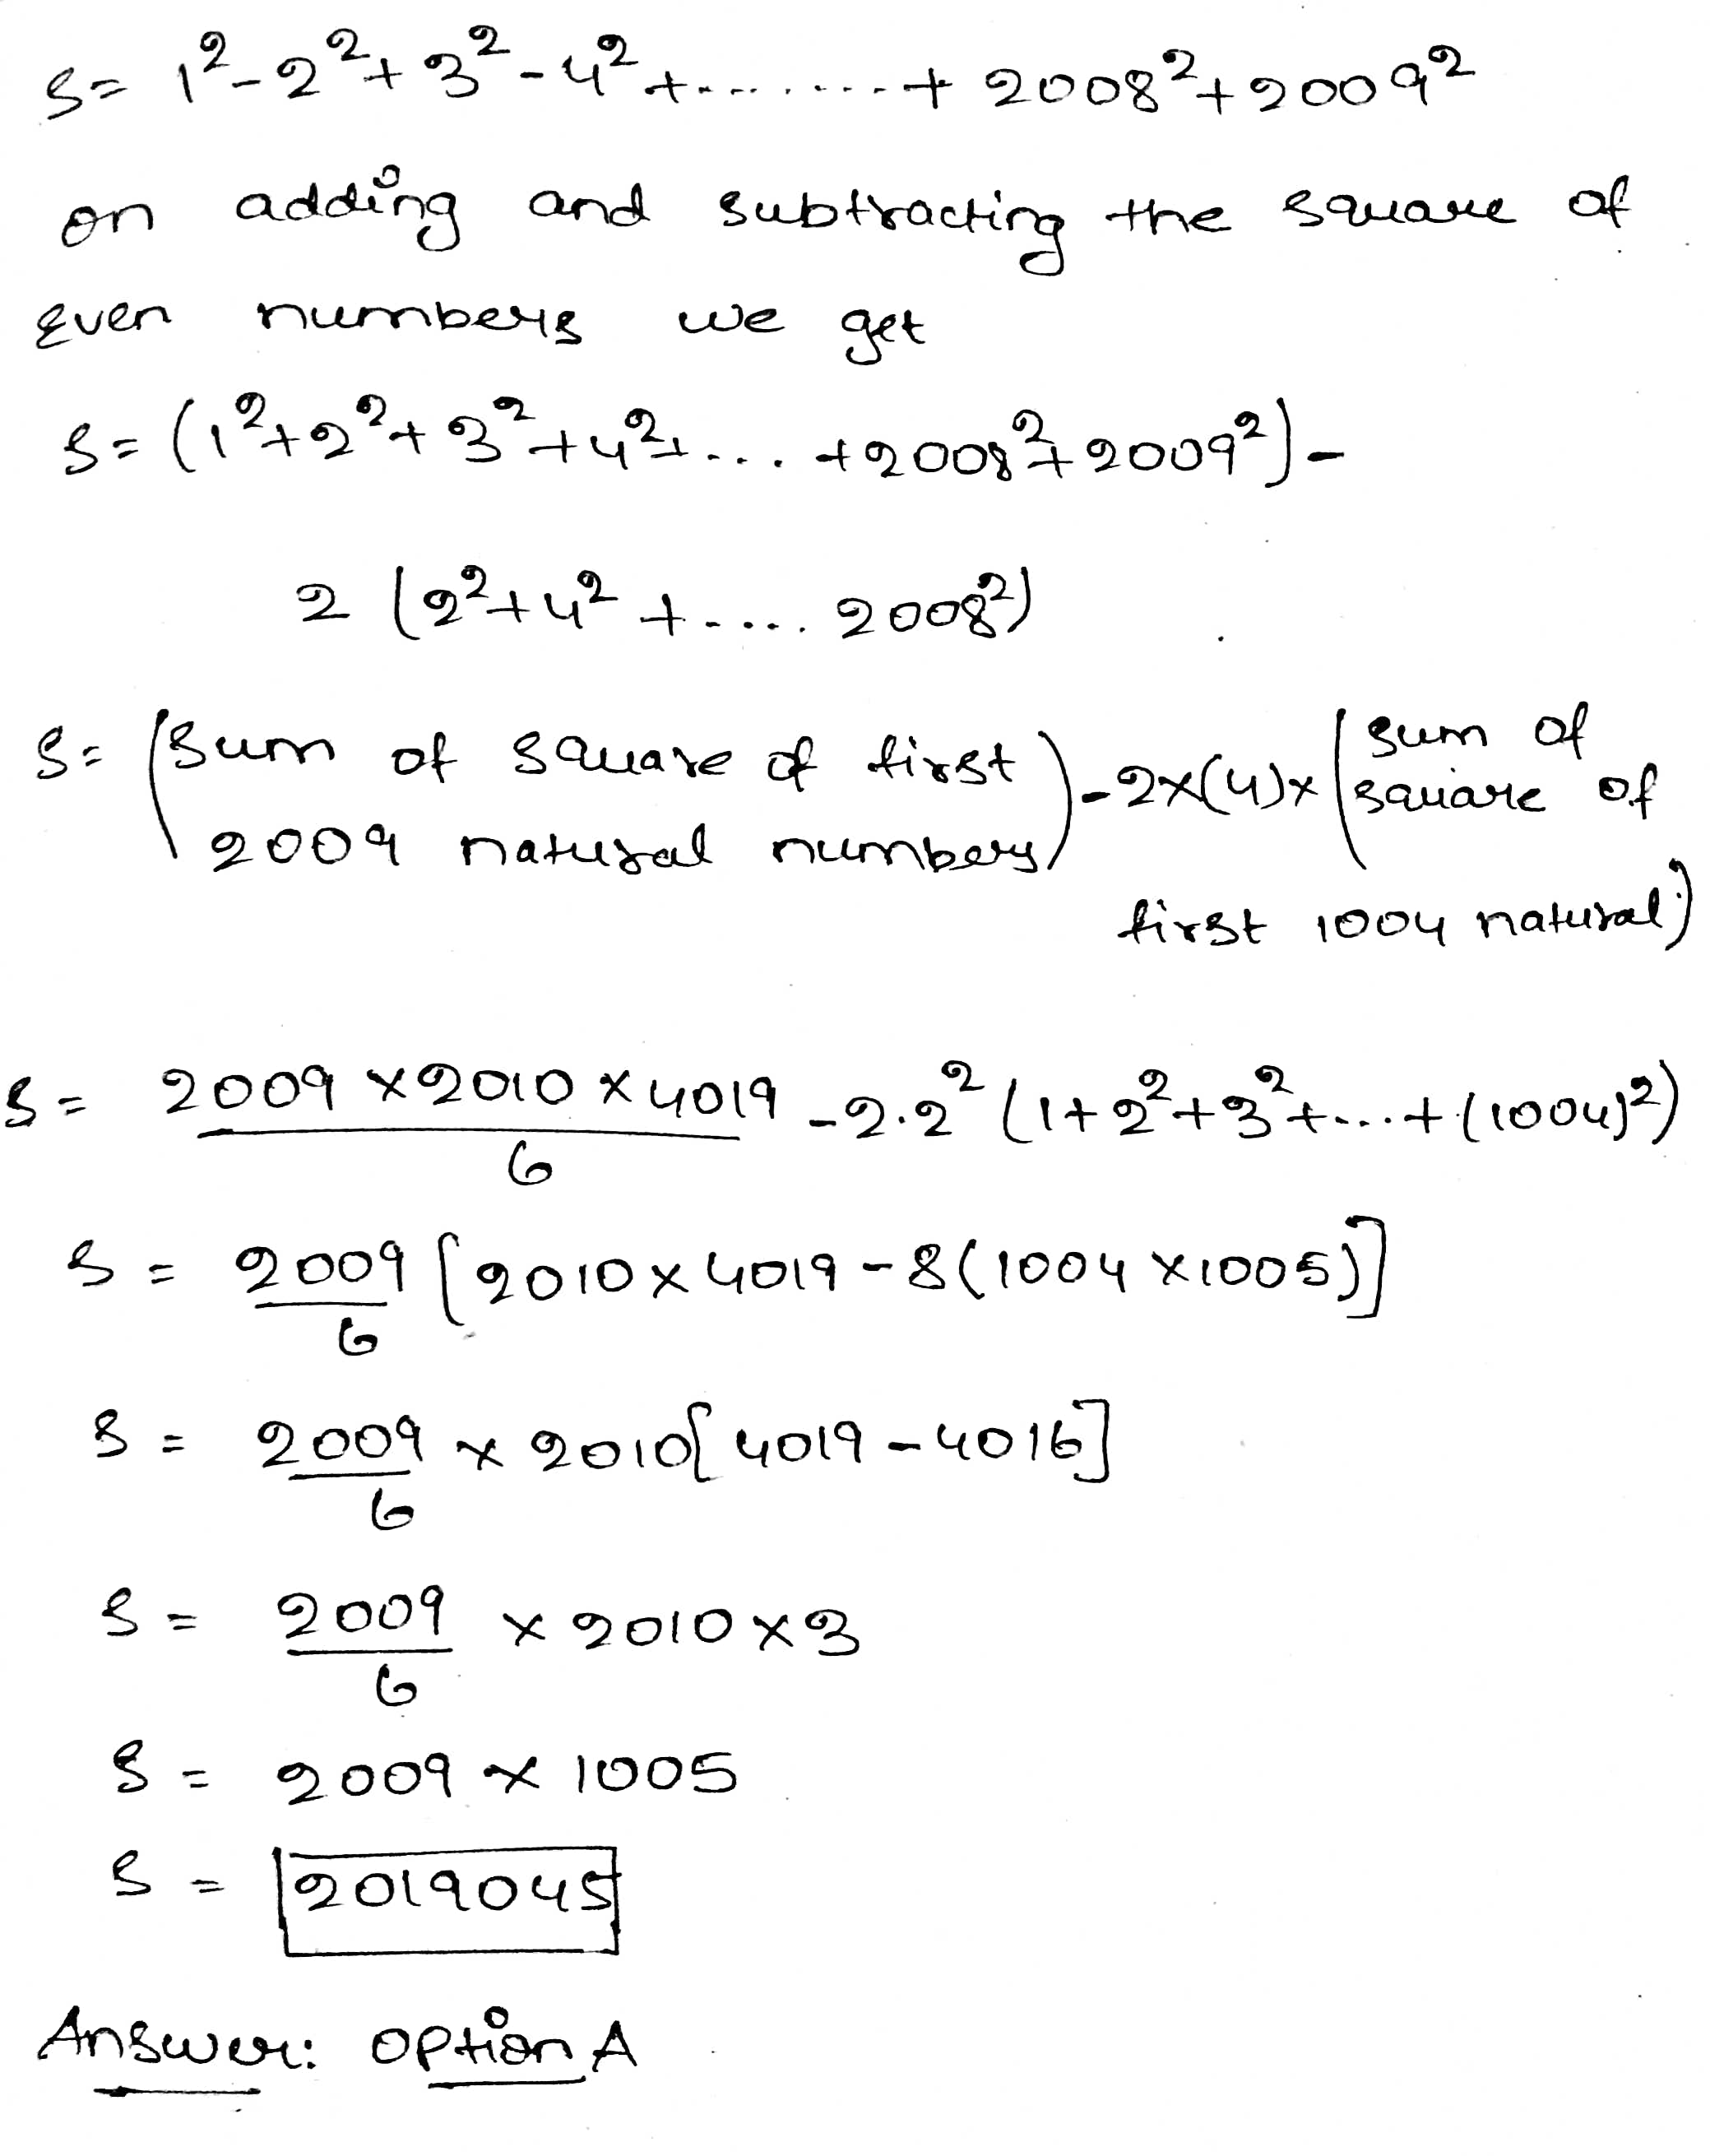 S= 1²-2²+3²-4²+.........+ 2008²+2009²
on adding and subtracting the square of
even numbers we get
S= (1²+2²+3²+4²+... +2008²+2009²)-
2 (2²+4²+..... 2008²)
S= (Sum of square of first 2009 natural numbers) -2x(4)x (sum of square of
first 1004 natural)
S= 2009 x2010 x4019 / 6 -2.2² (1+2²+3²+...+(1004)²)
S = 2009/6 [2010x4019-8(1004x1005)]
S = 2009/6 x 2010[4019-4016]
S = 2009/6 x 2010x3
S = 2009 x 1005
S = 2019045
Answer: Option A